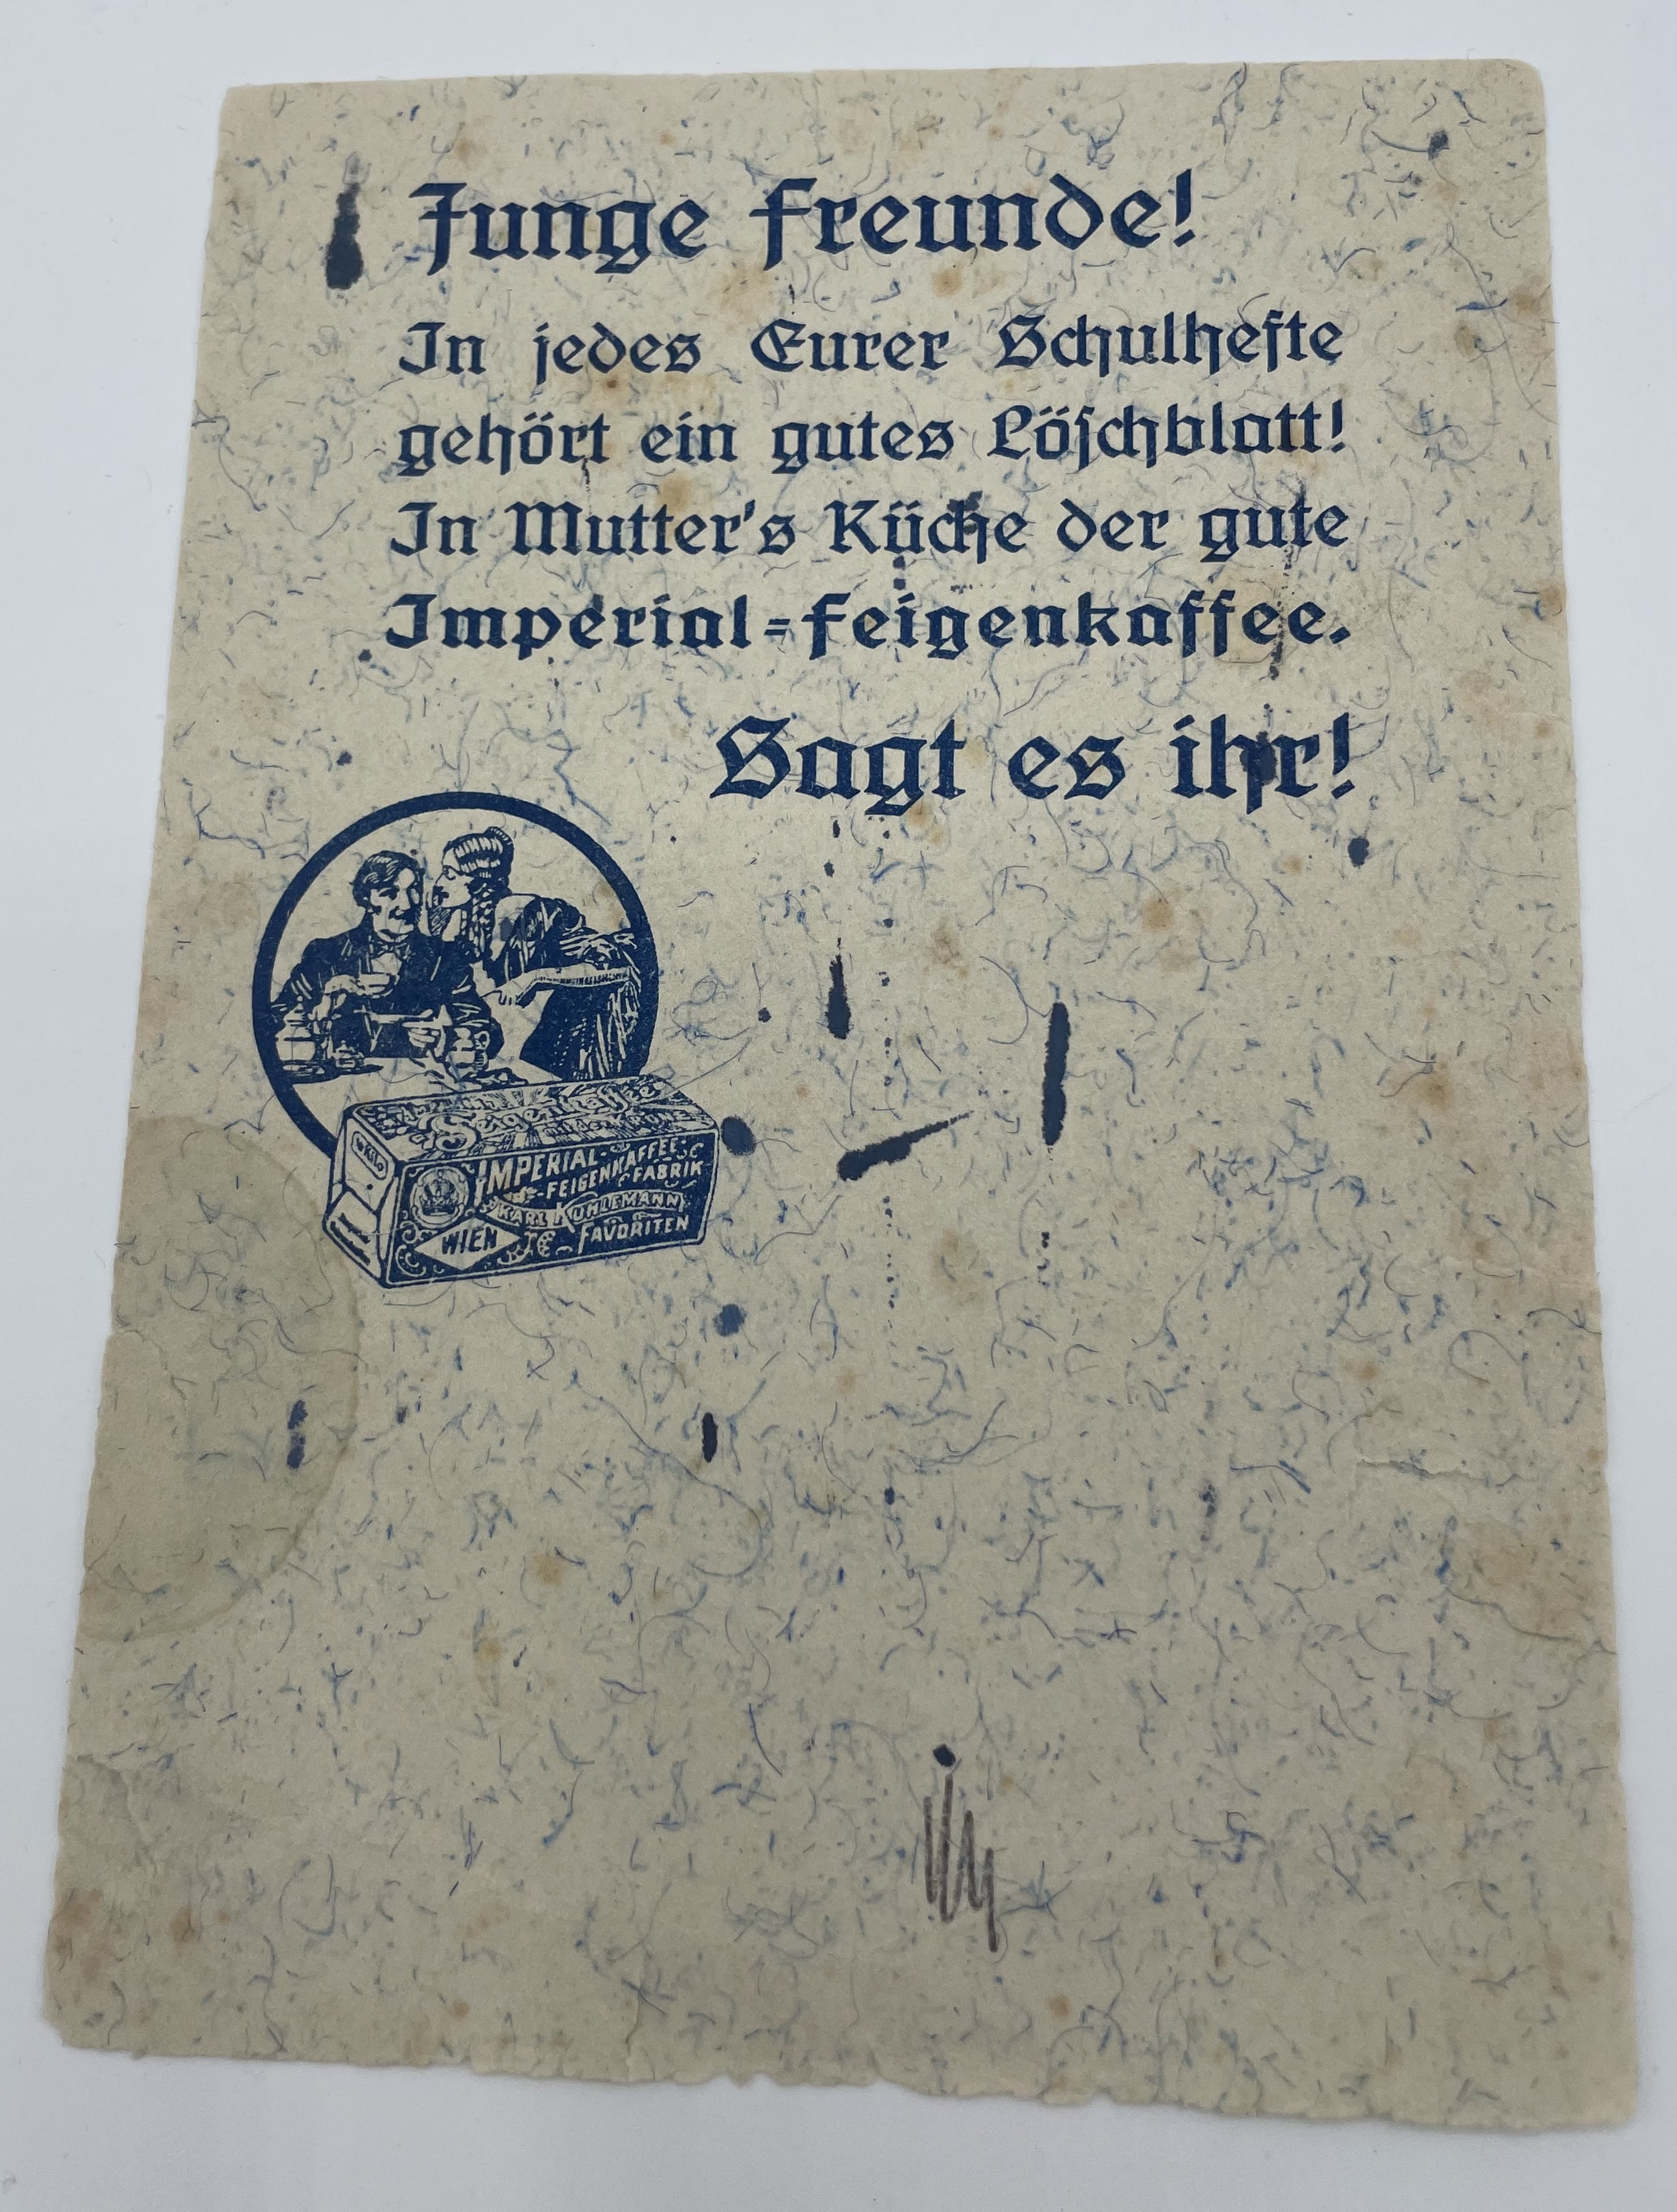 Junge Freunde!
In jedes Eurer Schulhefte
gehört ein gutes Löschblatt!
In Mutter's Küche der gute
Imperial=Feigenkaffee.
Sagt es ihr!
Feigenkaffee
mit der KRONE
IMPERIAL-
FEIGENKAFFEE-
FABRIK
KARL KUHLEMANN
WIEN
FAVORITEN